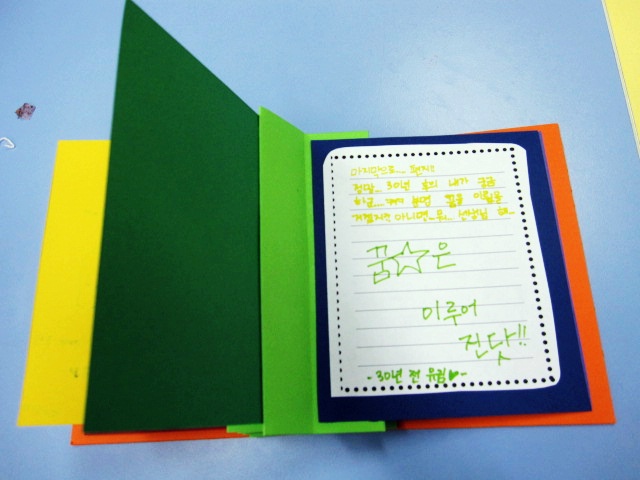 마지막으로... 편지는
정말... 30년 후의 내가 궁금
하군... 내가 놓면 꿈을 이뤘을
거겠지만 아니면.. 뭐.. 선생님
꿈☆은
이루어
진닷!!
-30년 전 유림♥-